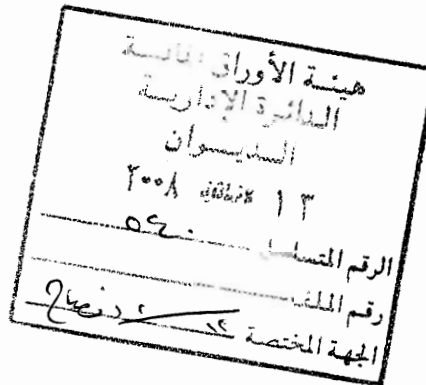 هيئة الأوراق المالية
الدائرة الإدارية
الديوان
١٣ ٢٠٠٨
الرقم المتسلسل
رقم الملف
الجهة المختصة